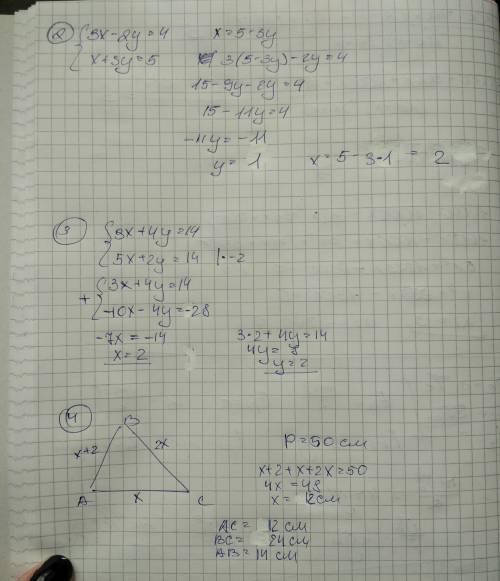 2) { 3x-2y=4
x+3y=5
x=5-3y
3(5-3y)-2y=4
15-9y-2y=4
15-11y=4
-11y=-11
y=1
x=5-3·1=2
3) { 3x+4y=14
5x+2y=14 |·-2
+ { 3x+4y=14
-10x-4y=-28
-7x=-14
x=2
3·2+4y=14
4y=8
y=2
4)
B
x+2
2x
A
x
C
P=50 см
x+2+x+2x=50
4x=48
x=12см
AC=12см
BC=24см
AB=14см